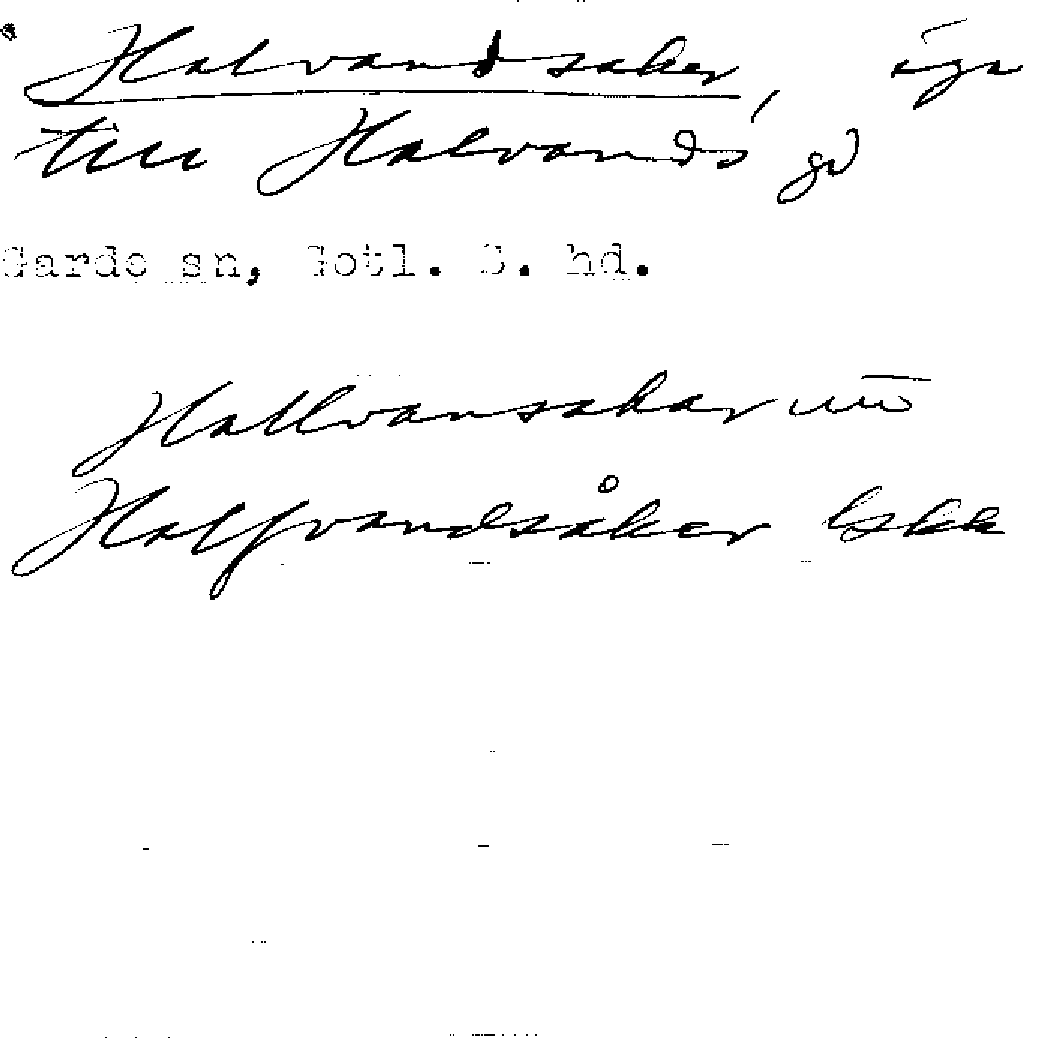 Halvandsaker, äga
till Halvands gd
Garde sn, Gotl. S. hd.
Hallvansakar
Halfvandsåker lskk